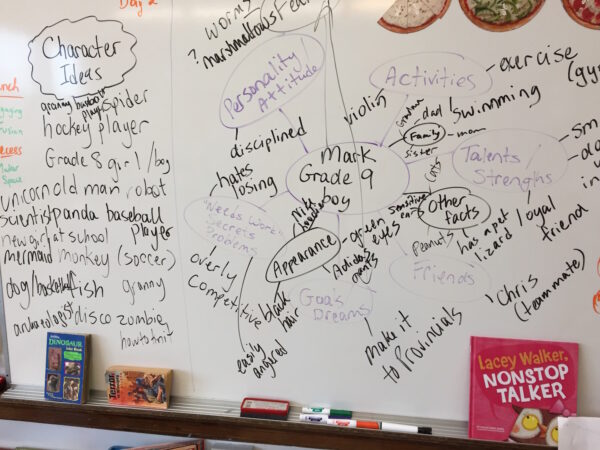 Day 2
Character
Ideas
granny
spider
hockey player
Grade 8 girl/boy
unicorn old man robot
scientist panda baseball
player
new girl at school
mermaid monkey (soccer)
dog/basketball fish granny
archaeologist disco zombie
how to knit
worms
marshmallows
Fear
?
Personality/
Attitude
disciplined
hates
losing
Activities
exercise
(gy
swimming
violin
Mark
Grade 9
boy
Family
dad
mom
sister
Talents/
Strengths
sm
loyal
friend
in
"Needs Work"
Secrets
Problems
overly
competitive
easily
angered
Appearance
Nike
headband
green
eyes
Adidas
pants
black
hair
Other
facts
sensitive
ears
cats
Peanuts
has a pet
lizard
Friends
Chris
(teammate)
Goals
Dreams
make it
to Provincials
DINOSAUR
Lacey Walker,
NONSTOP
TALKER